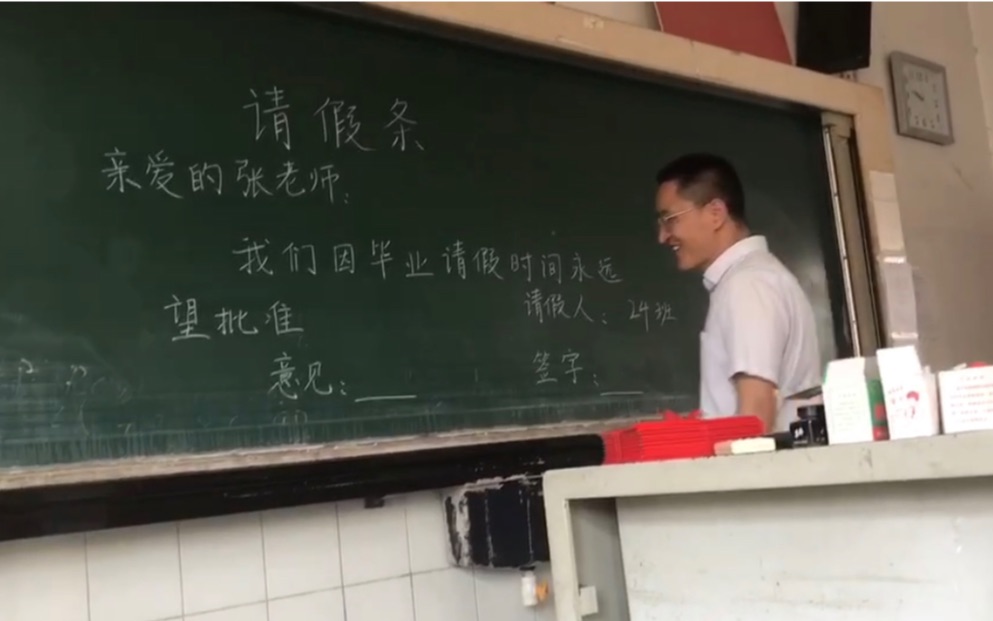 请假条
亲爱的张老师:
我们因毕业请假时间永远
望批准
请假人: 24班
意见:
签字: